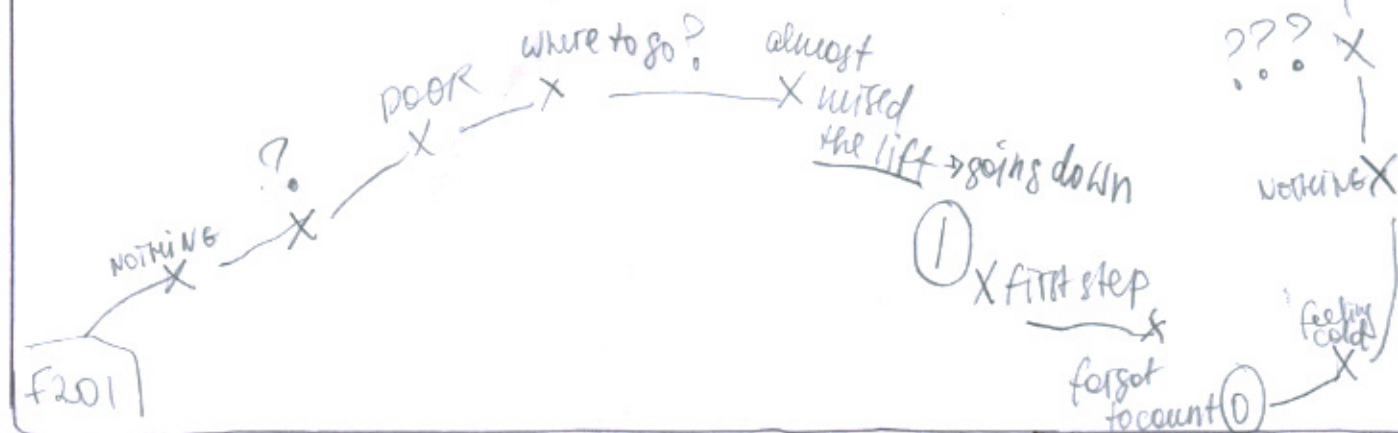 F201
NOTHING
?
DOOR
where to go?
almost
missed
the lift → going down
1
X first step
forgot
to count
0
feeling
cold
NOTHING
???